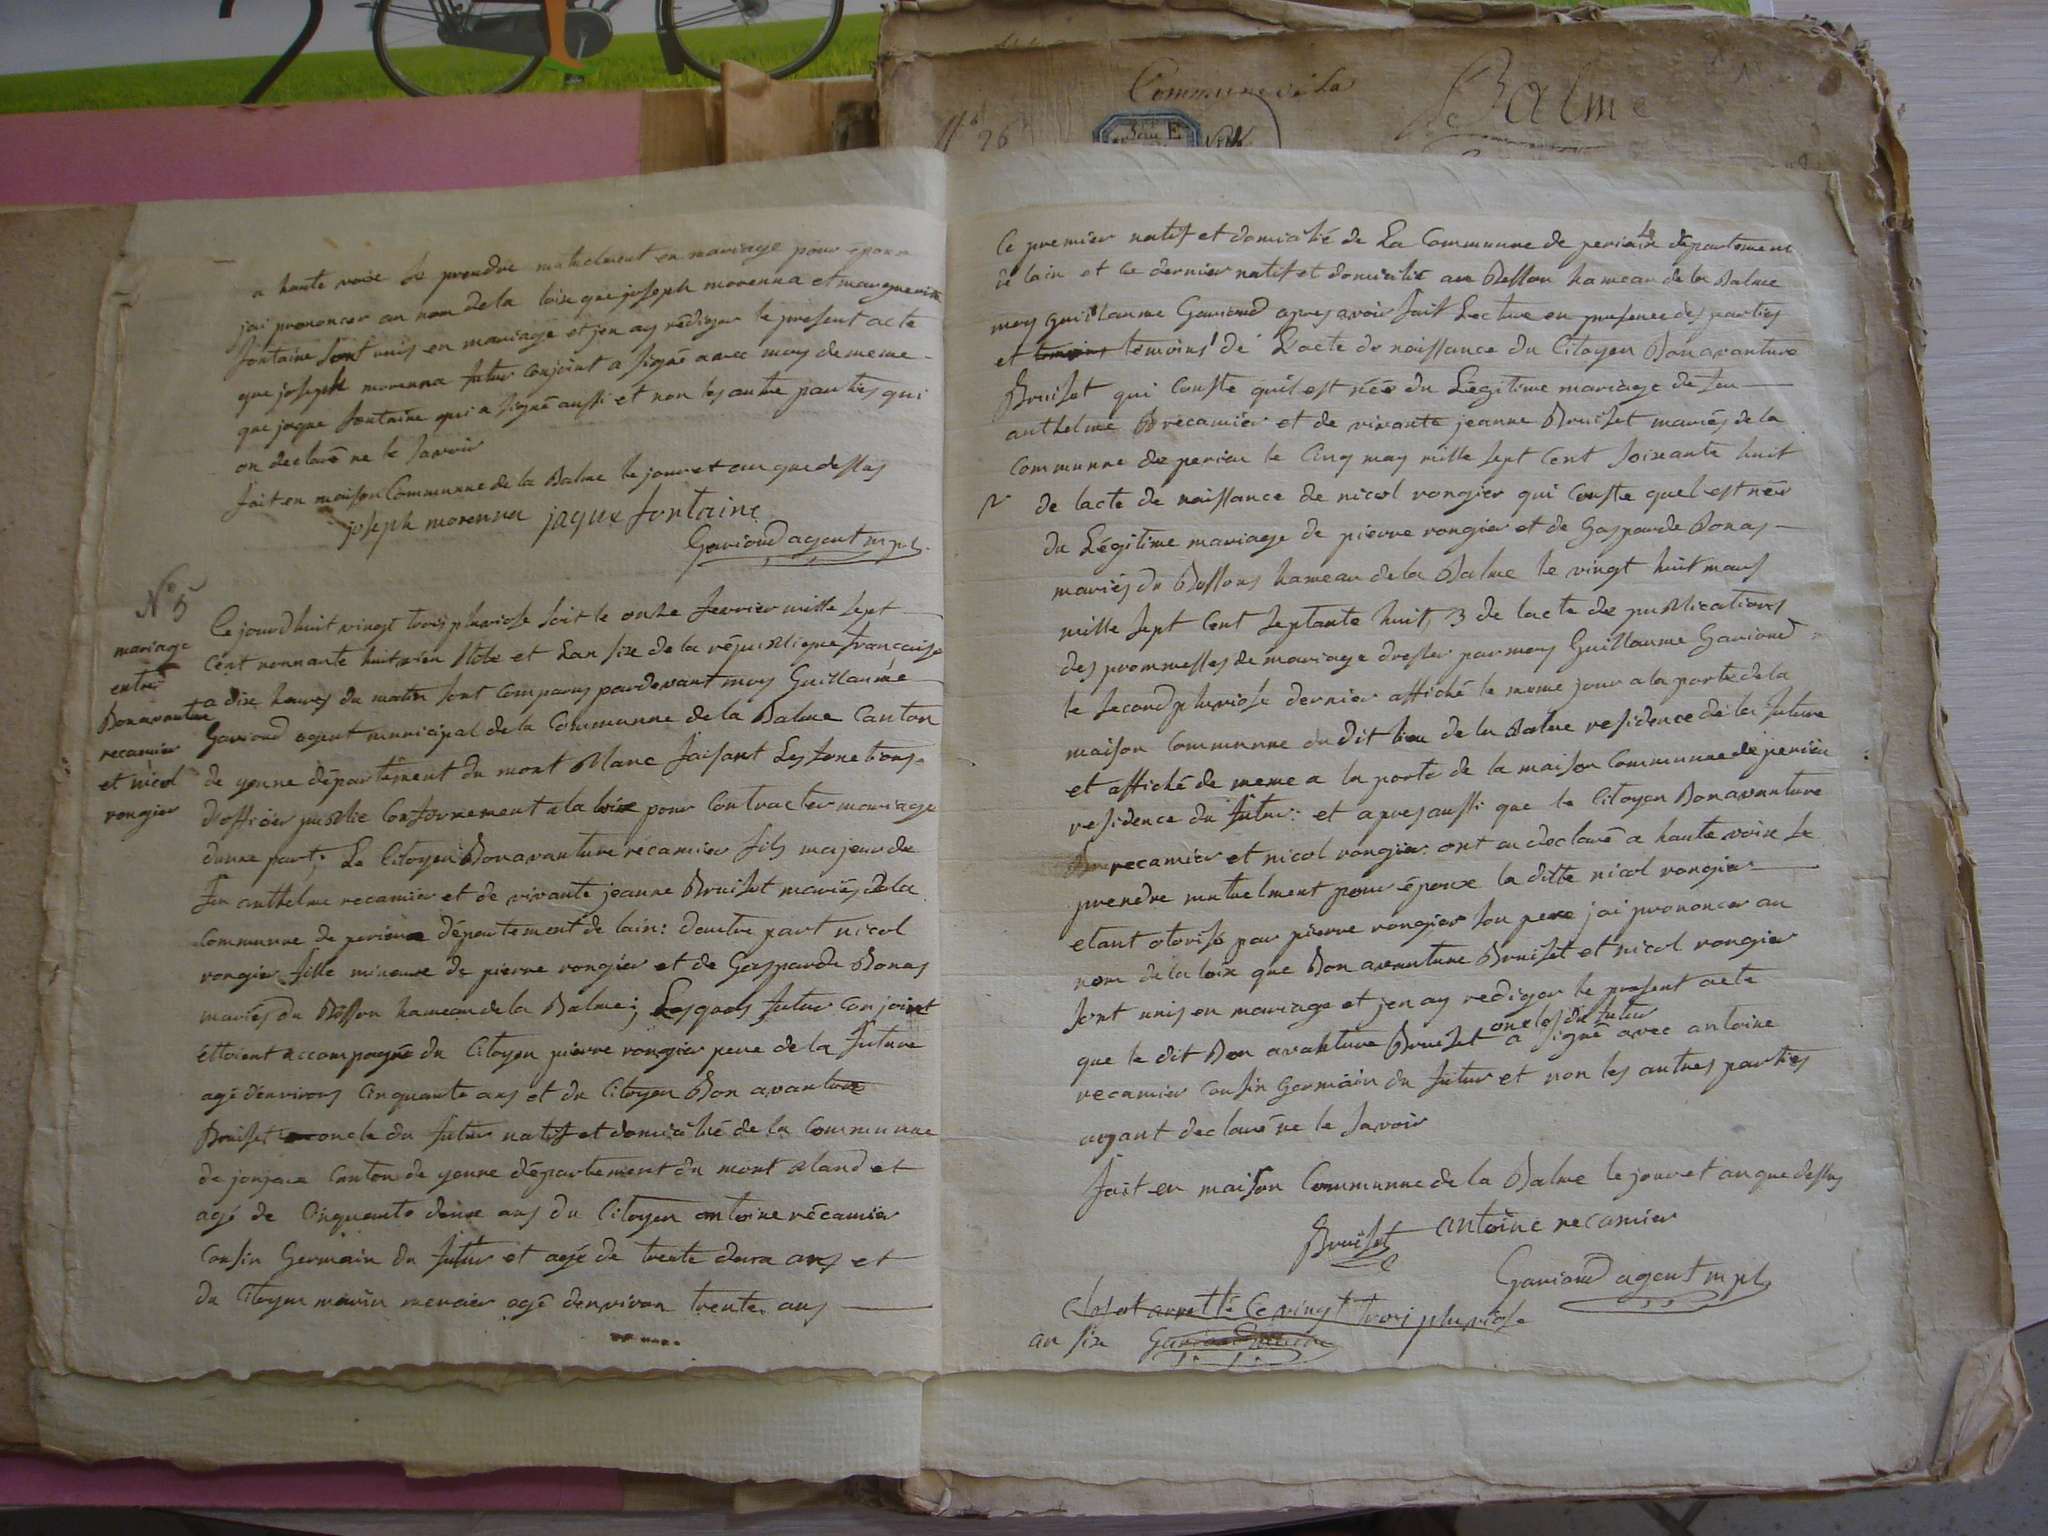 Commune de la
Balme
N° 26
a haute voix se prendre mutuelment en mariage pour epoux
jai prononcer au nom de la loix que joseph morenna et marguerite
fontaine sont unis en mariage et jen ay rediger le present acte
que joseph morenna futur conjoint a signé avec moy de meme
que jaque fontaine qui a signé aussi et non les autre parties qui
on declaré ne le savoir
fait en maison Commune de la Balme le jour et an que dessus
joseph morenna jaque fontaine
Gariond agent mpl.
N° 5
mariage
entre
Bonavanture
recamier
et nicol
rongier
Ce jourdhuit vingt trois pluviose soit le onze fevrier mille sept
Cent nonnante huit vieu stile et Lan six de la république française
a dix heures du matin sont comparus pardevant moy Guillaume
Gariond agent municipal de la Commune de la Balme Canton
de yenne département du mont Blanc faisant Les fonctions
d'officier public Conformement a la loix pour Contracter mariage
dunne part; Le Citoyen Bonavanture récamier fils majeur de
feu anthelme recamier et de vivante jeanne Bruiset mariés de la
Commune de perieux département de lain: dautre part nicol
rongier fille mineure de pierre rongier et de Gasparde Bonas
mariés du Bosson hameau de la Balme; Lesquels futur conjoint
éttoient accompagné du Citoyen pierre rongier pere de la future
agé d'environs Cinquante ans et du Citoyen Bon avanture
Bruiset oncle du futur natif et domicilié de la Commune
de jonjeux Canton de yenne département du mont bland et
agé de Cinquante deux ans du Citoyen antoine récamier
Cousin Germain du futur et agé de trente deux ans et
du Citoyen marin mercier agé denviron trente ans
Ce premier natif et domicilié de La Commune de perieu département
de lain et le dernier natif et domicilié au Bosson hameau de la Balme
moy guillaume Gariond apres avoir fait Lecture en presence des parties
et temoins temoins 1 de L'acte de naissance du Citoyen Bonavanture
Bruiset qui Conste quil est née du Légitime mariage de feu
anthelme Brecamier et de vivante jeanne Bruiset mariés de la
Commune de perieu le Cinq may mille sept Cent soixante huit
2 de lacte de naissance de nicol rongier qui Conste quel est née
du Légitime mariage de pierre rongier et de Gasparde Bonas
mariés du Bossons hameau de la Balme le vingt huit mars
mille sept Cent septante huit, 3 de lacte de publications
des prommesses de mariage dresser par moy Guillaume Gariond
le second pluviose dernier affiché le meme jour a la porte de la
maison Commune du dit lieu de la Balme residence de la future
et affiché de meme a la porte de la maison Commune de perieu
residence du futur: et apres aussi que le Citoyen Bonavanture
recamier et nicol rongier ont eu declaré a haute voix se
prendre mutuelment pour époux la ditte nicol rongier
etant otorisé par pierre rongier son pere jai prononcer au
nom de la loix que Bon avanture Bruiset et nicol rongier
sont unis en mariage et jen ay rediger le present acte
que le dit Bon avanture Bruiset oncles du futur a signé avec antoine
recamier Cousin Germain du futur et non les autres parties
ayant declaré ne le savoir
fait en maison Commune de la Balme le jour et an que dessus
Bruiset antoine recamier
Gariond agent mpl
Clos et arretté Ce vingt trois pluviose
an six